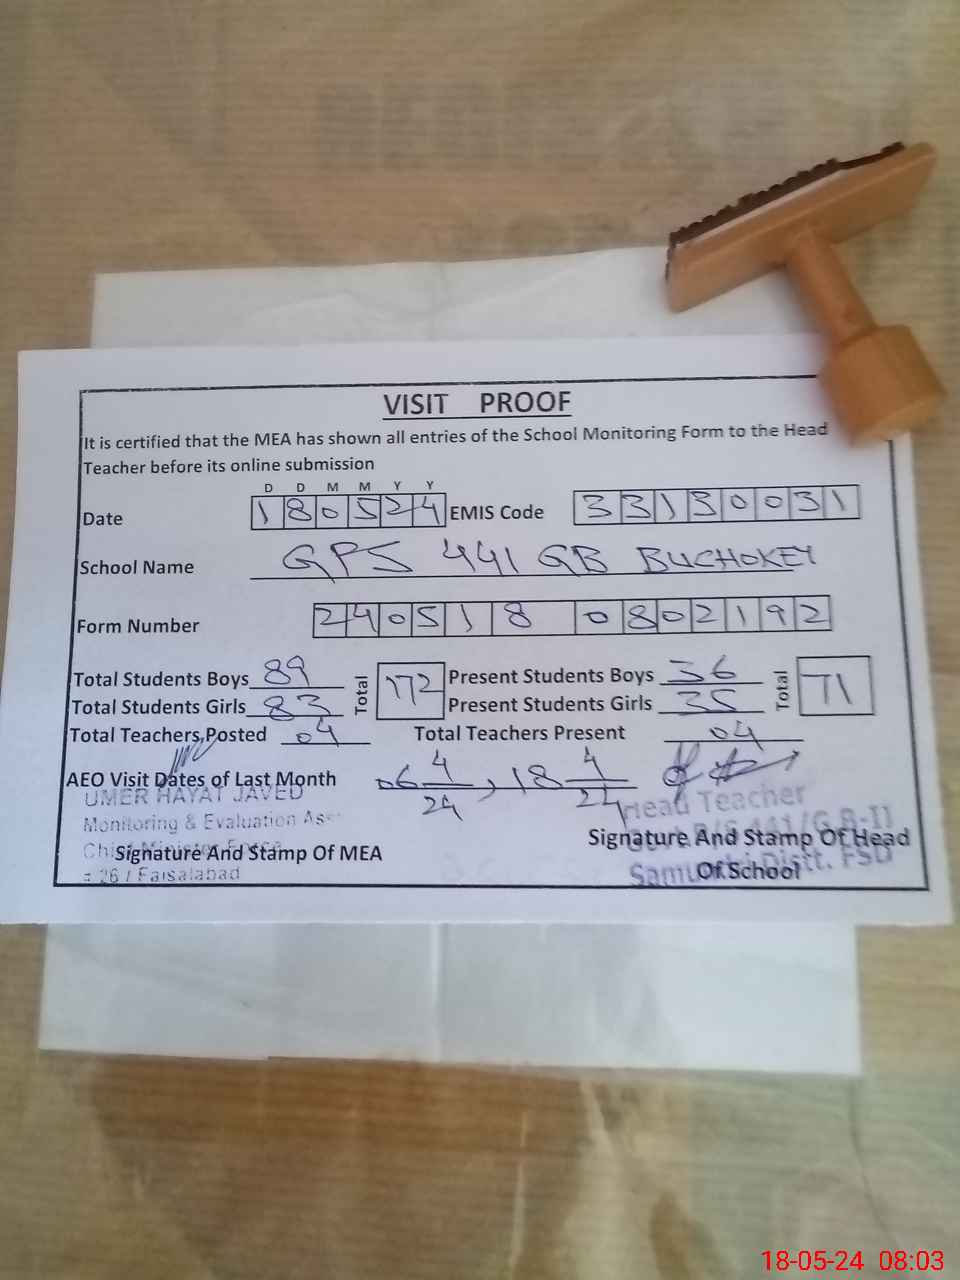 VISIT PROOF
It is certified that the MEA has shown all entries of the School Monitoring Form to the Head
Teacher before its online submission
D D M M Y Y
Date 180524 EMIS Code 33130031
School Name GPS 441 GB BUCHOKEY
Form Number 240518 0802192
Total Students Boys 89 Total 172 Present Students Boys 36 Total 71
Total Students Girls 83 Present Students Girls 35
Total Teachers Posted 04 Total Teachers Present 04
AEO Visit Dates of Last Month 06 4/24, 18 4/24
UMER HAYAT JAVED
Monitoring & Evaluation
Signature And Stamp Of MEA
36 / Faisalabad
Head Teacher
441/G.B-II
Signature And Stamp Of Head
Of School
Distt. FSD
18-05-24 08:03